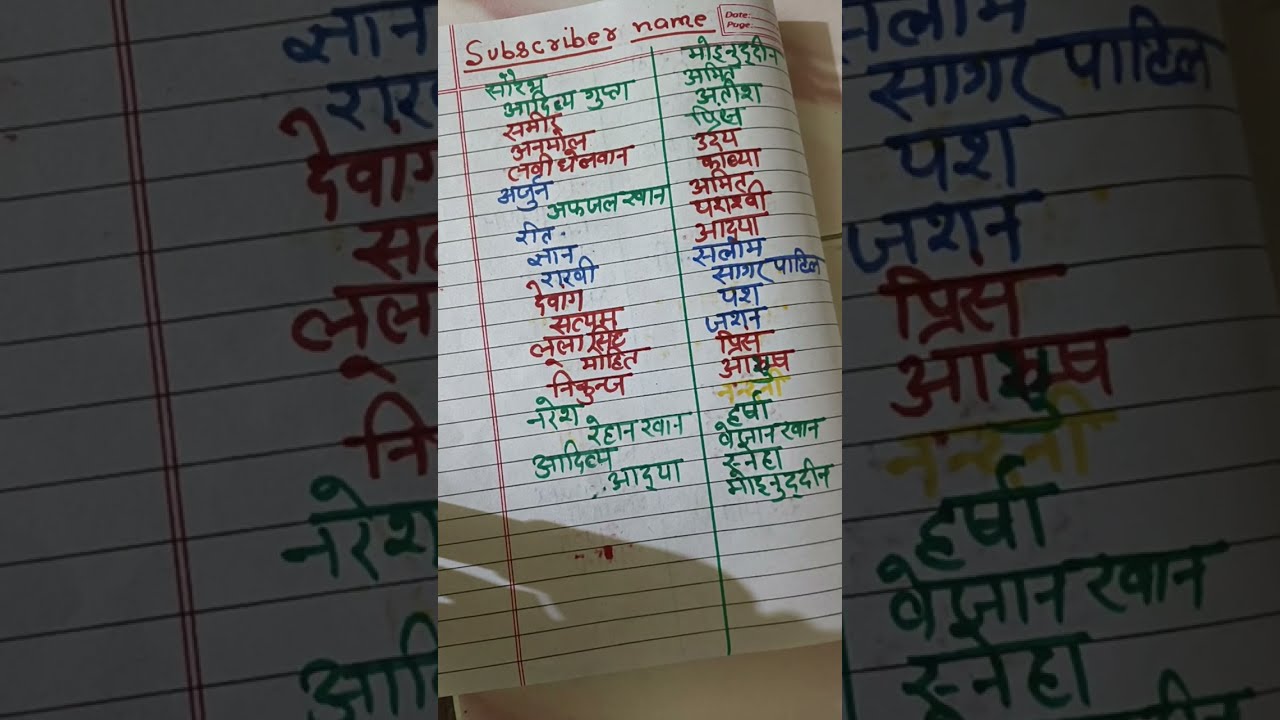 Subscriber name
Date:
Page:
सौरभ
आदित्य गुप्ता
समीर
अनमोल
लवी धेलवान
अर्जुन
अफजल खान
रीत
ज्ञान
राखी
देवांग
सत्यम
मोहित
निकुन्ज
नरेश
रेहान खान
आदित्य
आद्या
मोइनुद्दीन
अमित
अतीश
प्रिन्स
उदय
काव्या
अमित
यशस्वी
आद्या
सलाम
सागर पाटिल
यश
जशन
प्रिंस
नन्दनी
हर्षा
स्नेहा
मोइनुद्दीन